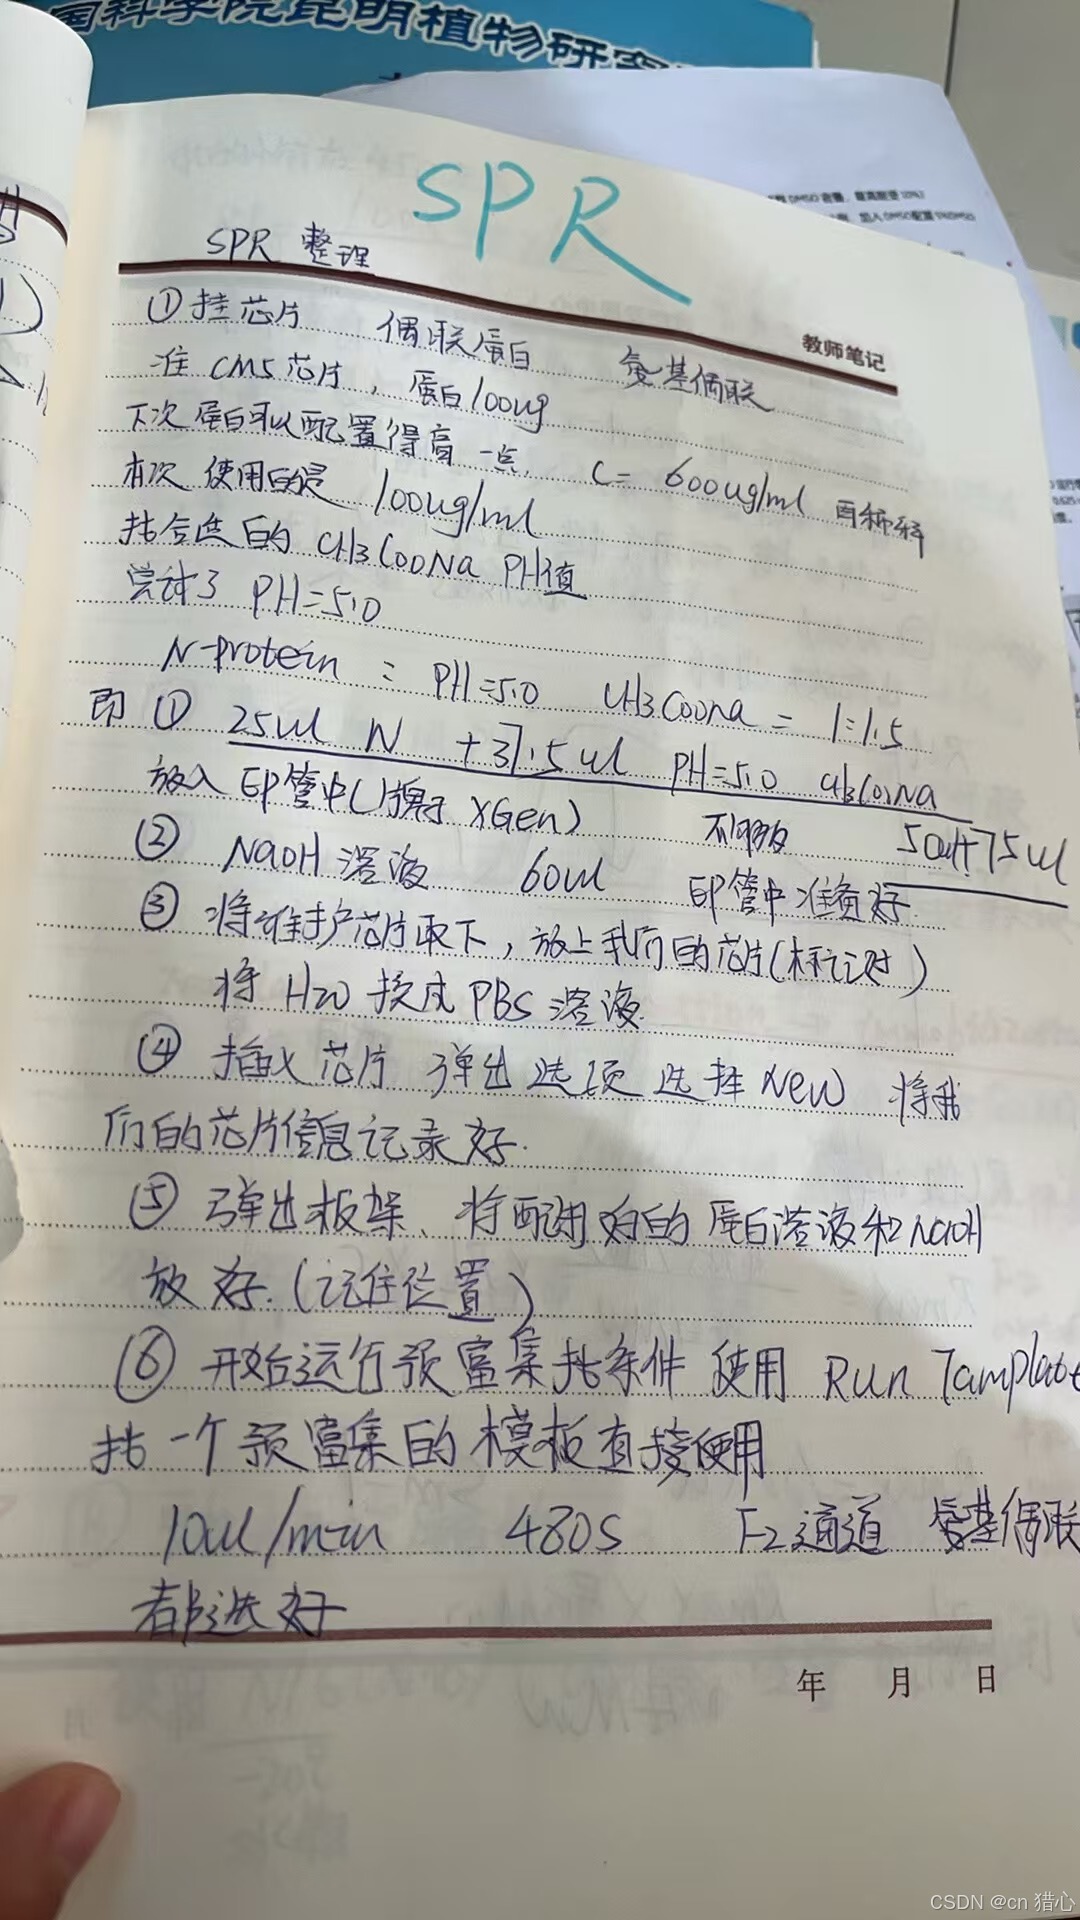 国科学院昆明植物研究
SPR
SPR 整理
教师笔记
①挂芯片 偶联蛋白 氨基偶联
准 CM5芯片, 蛋白100ug
下次蛋白可以配置得高一点. C= 600ug/ml 再稀释
本次使用的是 100ug/ml
找合适的 CH3COONa PH值
尝试了 PH=5.0
N-protein : PH=5.0 CH3COONa = 1:1.5
即 ① 25ul N +37.5ul PH=5.0 CH3COONa
放入EP管中 XGen) 不够 50ul+75ul
② NaOH溶液 60ul EP管中准备好.
③ 将维护芯片取下, 放上我们的芯片(标记对)
将 H2O 换成 PBS 溶液.
④ 插入芯片 弹出选项选择 New 将我
们的芯片信息记录好.
⑤ 弹出板架、将配制好的蛋白溶液和NaOH
放好.(记住位置)
⑥ 开始运行预富集找条件 使用 Run Tamplate
找一个预富集的模板直接使用
10ul/min 480s F2通道 氨基偶联
都选好
年 月 日
CSDN @cn 猎心